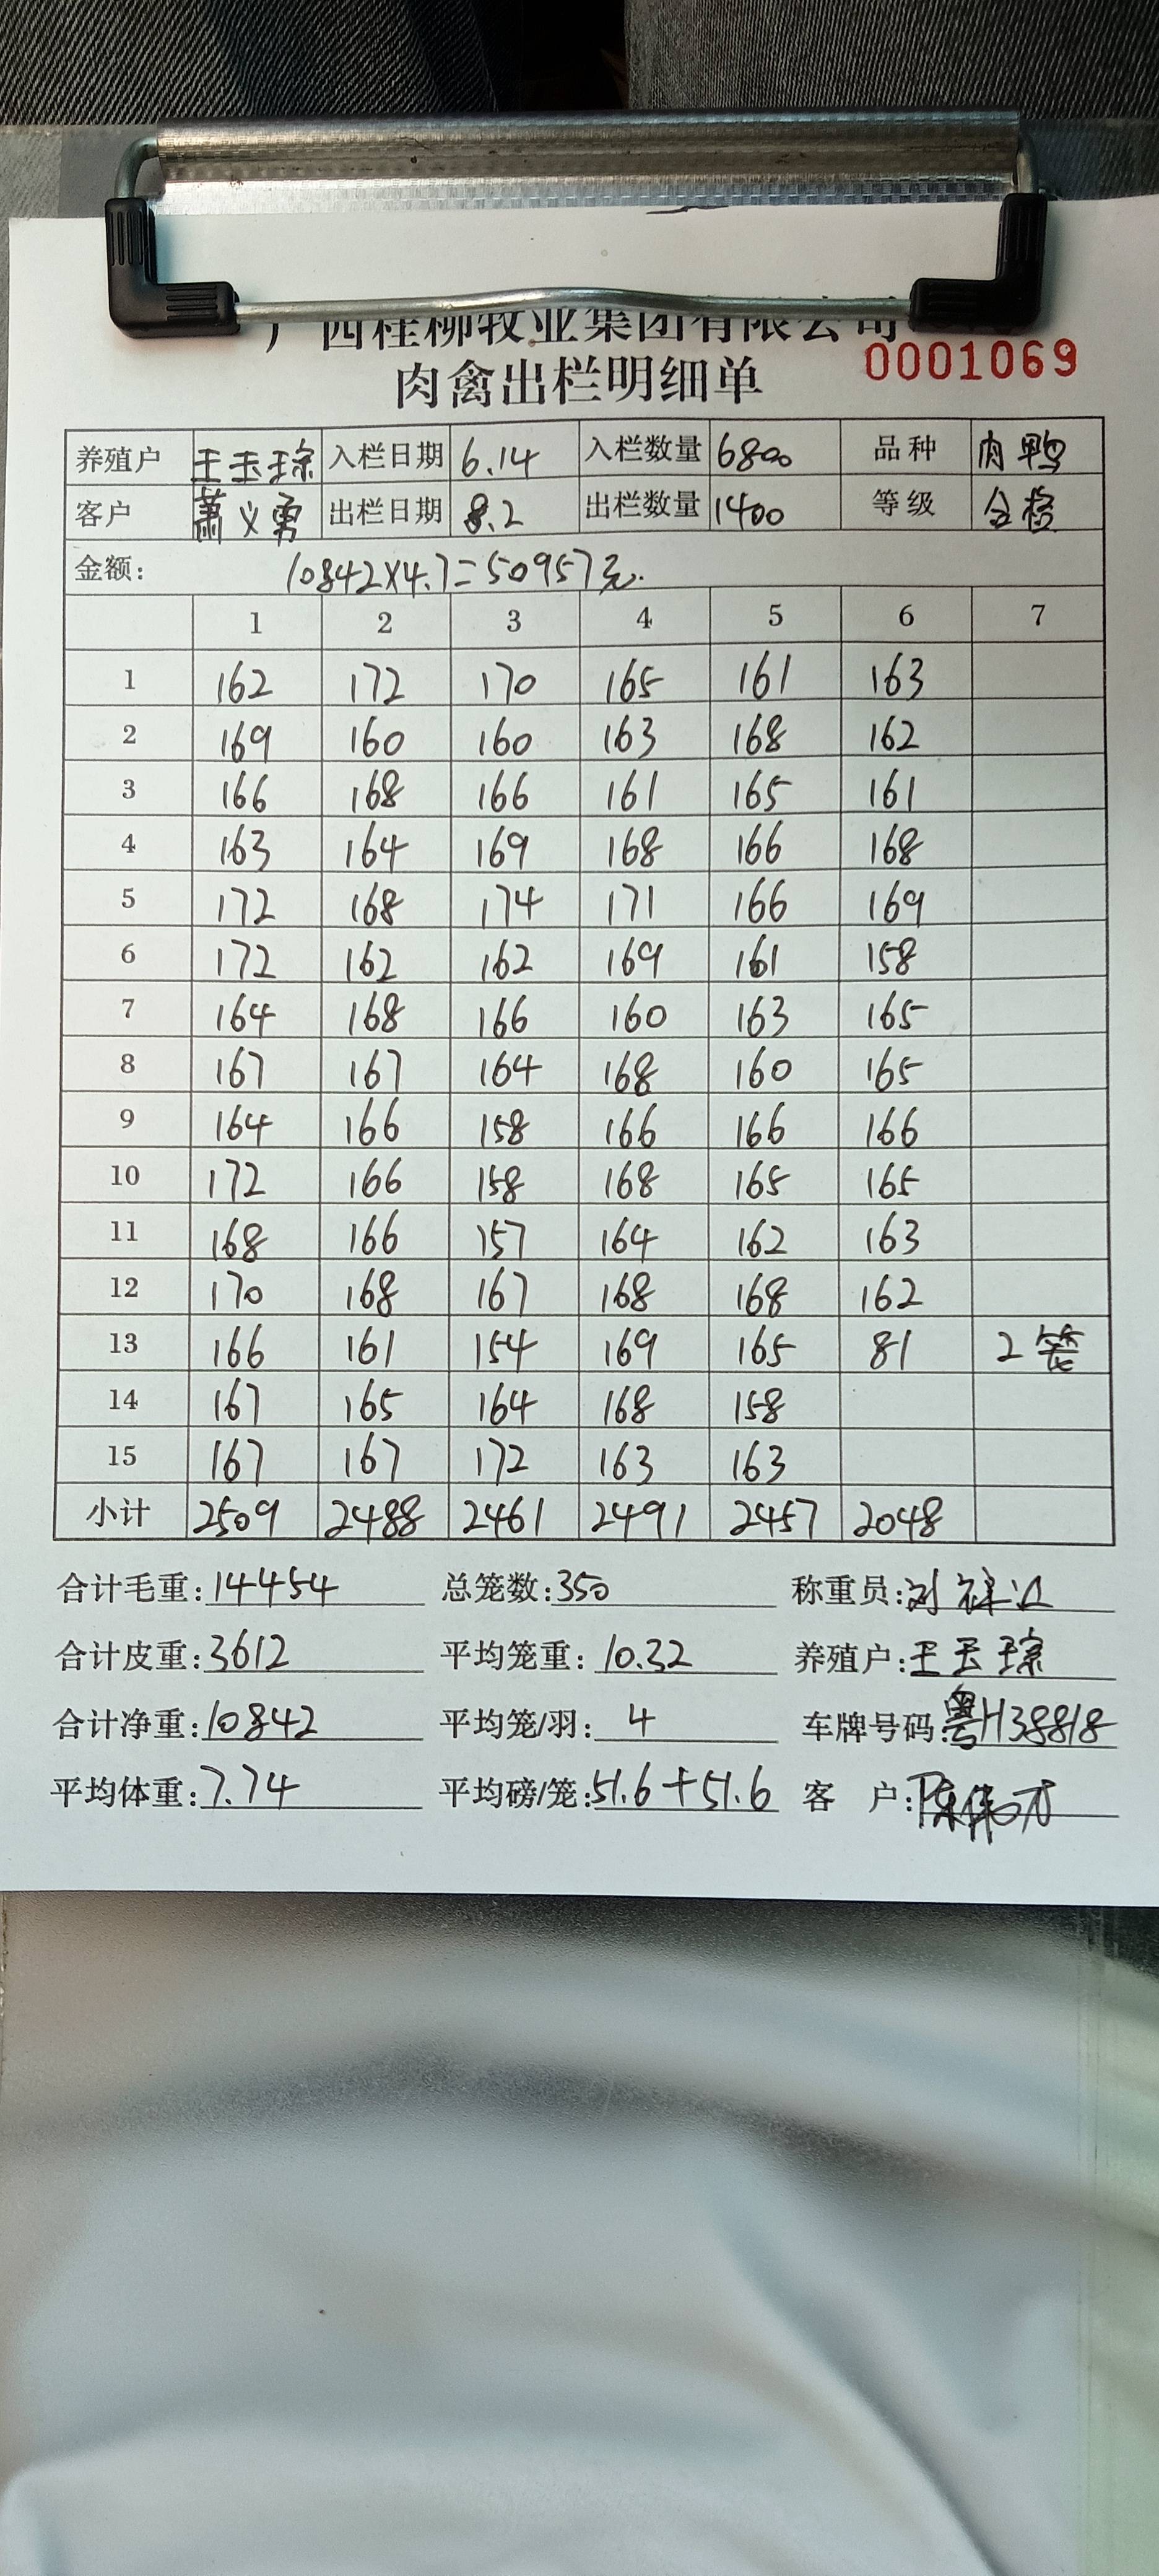 广西桂柳牧业集团有限公司
0001069
肉禽出栏明细单
养殖户 王玉琮 入栏日期 6.14 入栏数量 6800 品种 肉鸭
客户 萧义勇 出栏日期 8.2 出栏数量 1400 等级 合格
金额: 10842×4.7=50957元.
1 2 3 4 5 6 7
1 162 172 170 165 161 163
2 169 160 160 163 168 162
3 166 168 166 161 165 161
4 163 164 169 168 166 168
5 172 168 174 171 166 169
6 172 162 162 169 161 158
7 164 168 166 160 163 165
8 167 167 164 168 160 165
9 164 166 158 166 166 166
10 172 166 158 168 165 165
11 168 166 157 164 162 163
12 170 168 167 168 168 162
13 166 161 154 169 165 81 2笼
14 167 165 164 168 158
15 167 167 172 163 163
小计 2509 2488 2461 2491 2457 2048
合计毛重:14454 总笼数:350 称重员:刘
合计皮重:3612 平均笼重:10.32 养殖户:王玉琮
合计净重:10842 平均笼/羽:4 车牌号码:粤H38818
平均体重:7.74 平均磅/笼:51.6+51.6 客 户:陈伟